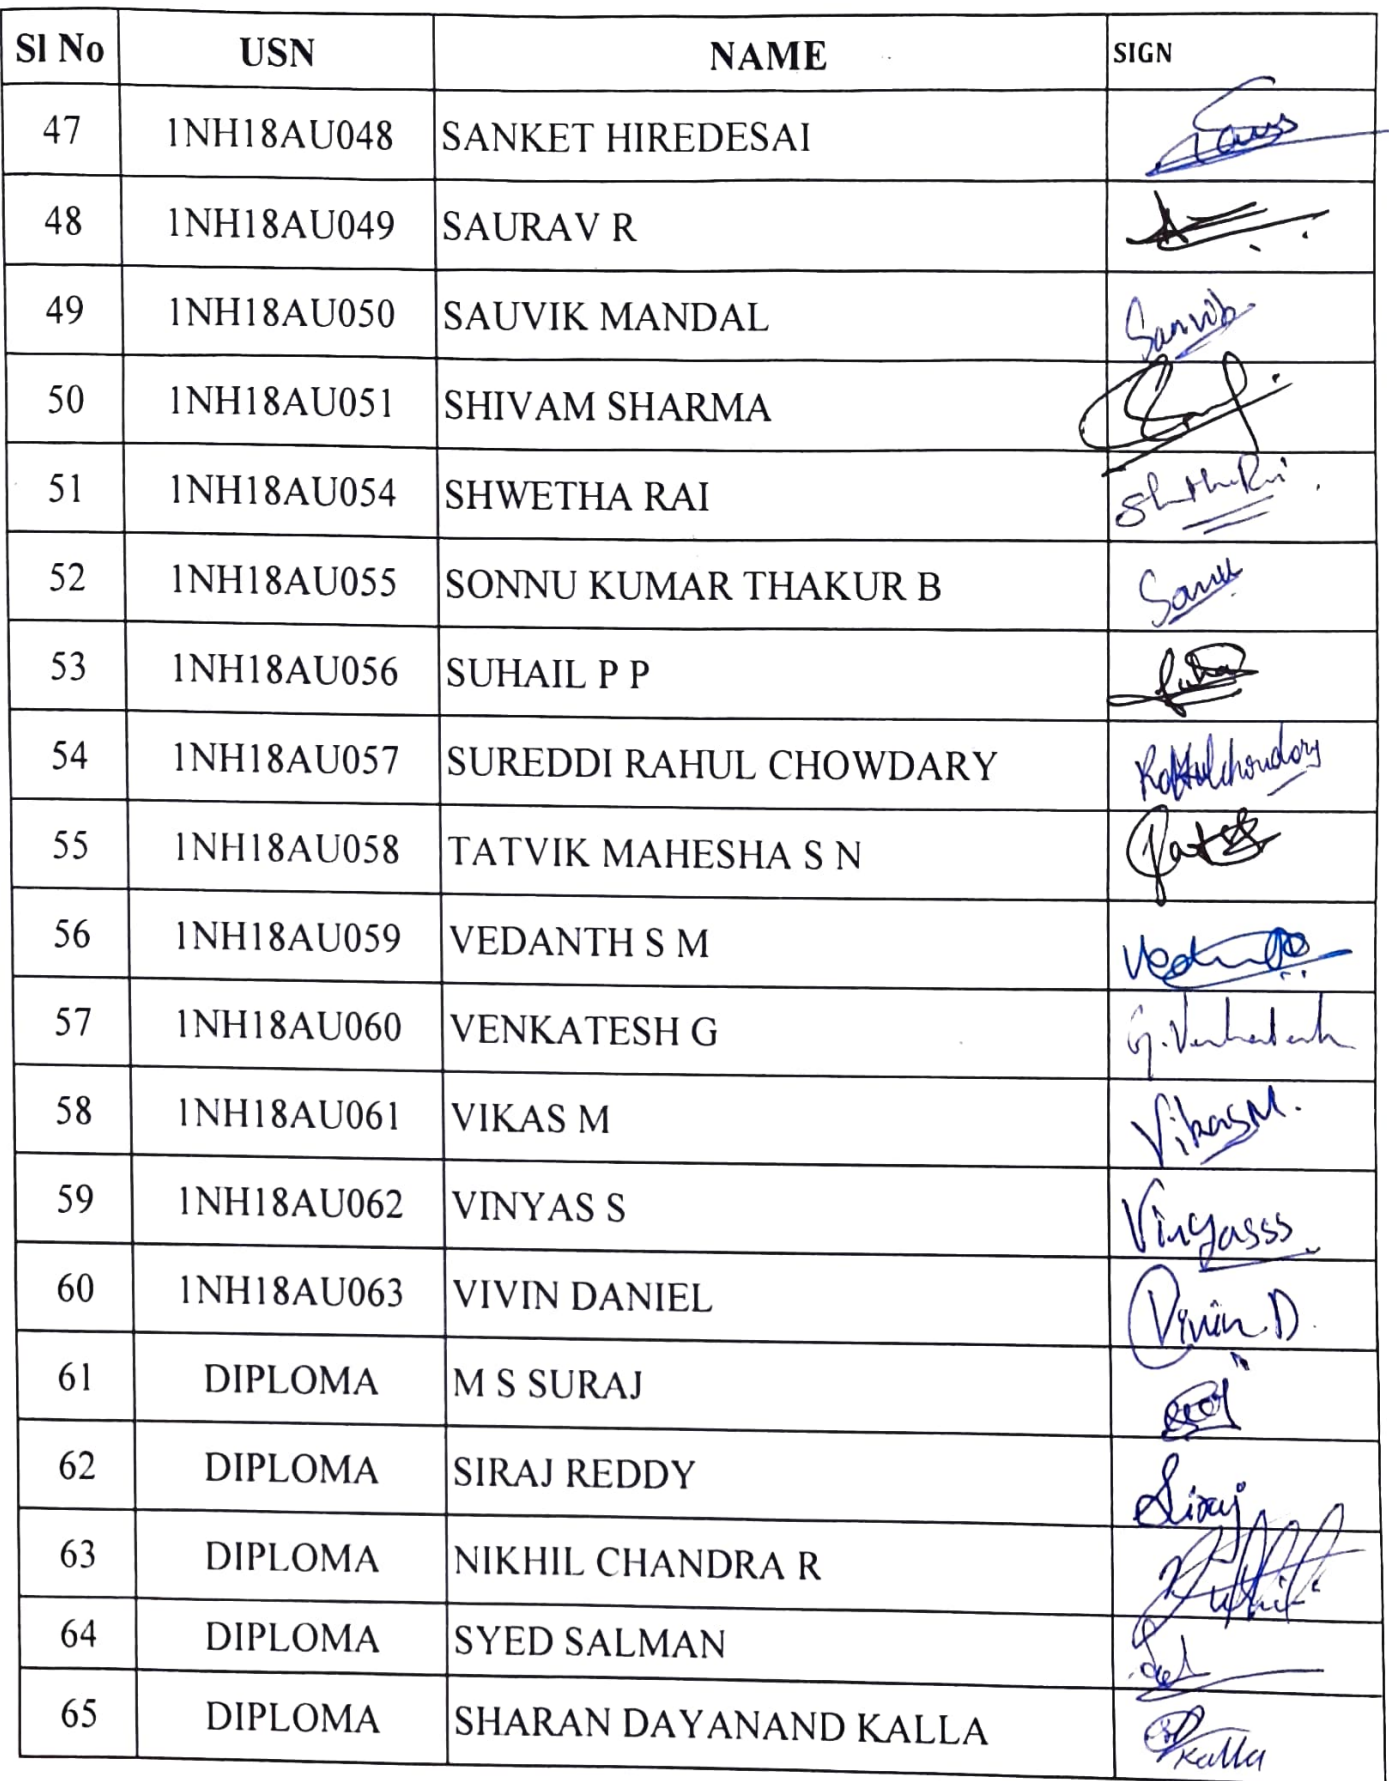 Sl No USN NAME SIGN
47 1NH18AU048 SANKET HIREDESAI
48 1NH18AU049 SAURAV R
49 1NH18AU050 SAUVIK MANDAL Sauvik
50 1NH18AU051 SHIVAM SHARMA
51 1NH18AU054 SHWETHA RAI
52 1NH18AU055 SONNU KUMAR THAKUR B
53 1NH18AU056 SUHAIL P P
54 1NH18AU057 SUREDDI RAHUL CHOWDARY Rahulchowdary
55 1NH18AU058 TATVIK MAHESHA S N
56 1NH18AU059 VEDANTH S M
57 1NH18AU060 VENKATESH G G. Venkatesh
58 1NH18AU061 VIKAS M Vikas M.
59 1NH18AU062 VINYAS S Vinyasss
60 1NH18AU063 VIVIN DANIEL Vivin.D
61 DIPLOMA M S SURAJ
62 DIPLOMA SIRAJ REDDY Siraj
63 DIPLOMA NIKHIL CHANDRA R
64 DIPLOMA SYED SALMAN
65 DIPLOMA SHARAN DAYANAND KALLA Kalla